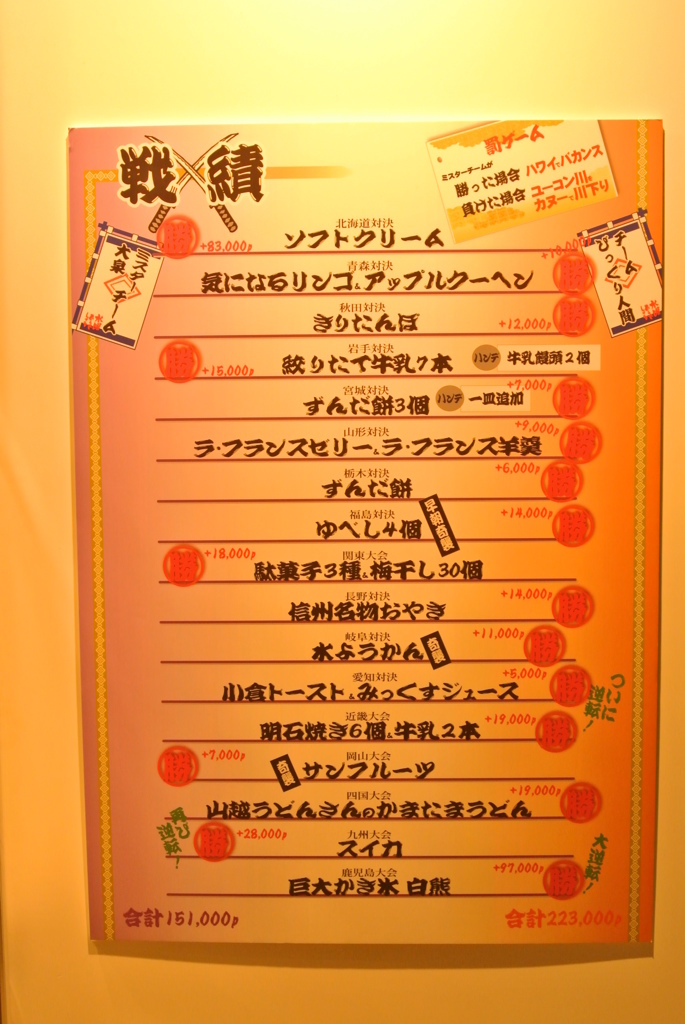 戦績
罰ゲーム
ミスターチームが
勝った場合 ハワイでバカンス
負けた場合 ユーコン川を
カヌーで川下り
ミスターチーム
大泉
チーム
びっくり人間
北海道対決
勝 +83,000p ソフトクリーム
青森対決
気になるリンゴ&アップルクーヘン 勝
秋田対決
きりたんぽ +12,000p 勝
岩手対決
勝 +15,000p 絞りたて牛乳7本 ハンデ 牛乳饅頭2個
宮城対決
ずんだ餅3個 ハンデ 一皿追加 +7,000p 勝
山形対決
ラ・フランスゼリー&ラ・フランス羊羹 +9,000p 勝
栃木対決
ずんだ餅 +6,000p 勝
福島対決
ゆべし4個 早朝奇襲 +14,000p 勝
関東大会
勝 +18,000p 駄菓子3種&梅干し30個
長野対決
信州名物おやき +14,000p 勝
岐阜対決
水ようかん 奇襲 +11,000p 勝
愛知対決
小倉トースト&みっくすジュース +5,000p 勝 ついに逆転!
近畿大会
明石焼き6個&牛乳2本 +19,000p 勝
岡山大会
勝 +7,000p 奇襲 サンフルーツ
四国大会
山越うどんさんのかまたまうどん +19,000p 勝
九州大会
再び逆転! 勝 +28,000p スイカ
鹿児島大会
巨大かき氷 白熊 +97,000p 勝 大逆転!
合計151,000p 合計223,000p